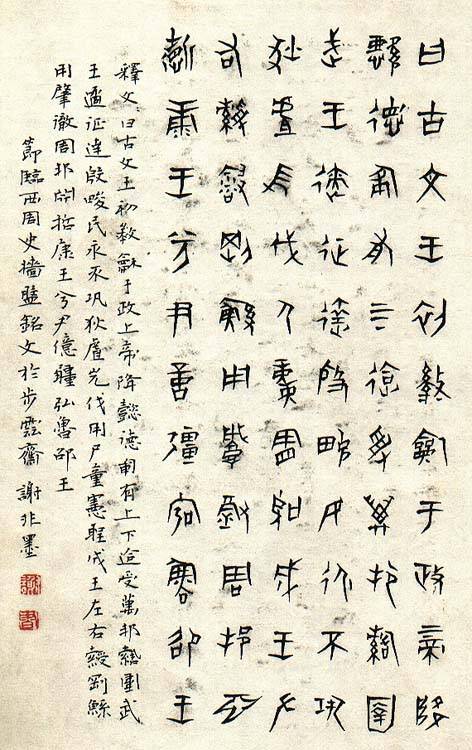 曰古文王初龢于政帝降
懿德甹有上下迨受萬邦圉
武王遹征達殷畯民永不巩
狄虘伐尸童憲聖成王左
右剛鯀用肇徹周邦
哲康王兮尹億疆弘魯邵王
釋文曰古文王初龢于政上帝降懿德甹有上下迨受萬邦圉武
王遹征達殷畯民永丕巩狄虘伐用尸童憲聖成王左右剛鯀
用肇徹周邦哲康王兮尹億疆弘魯邵王
節臨西周史墻盤銘文於步雲齋 謝非墨